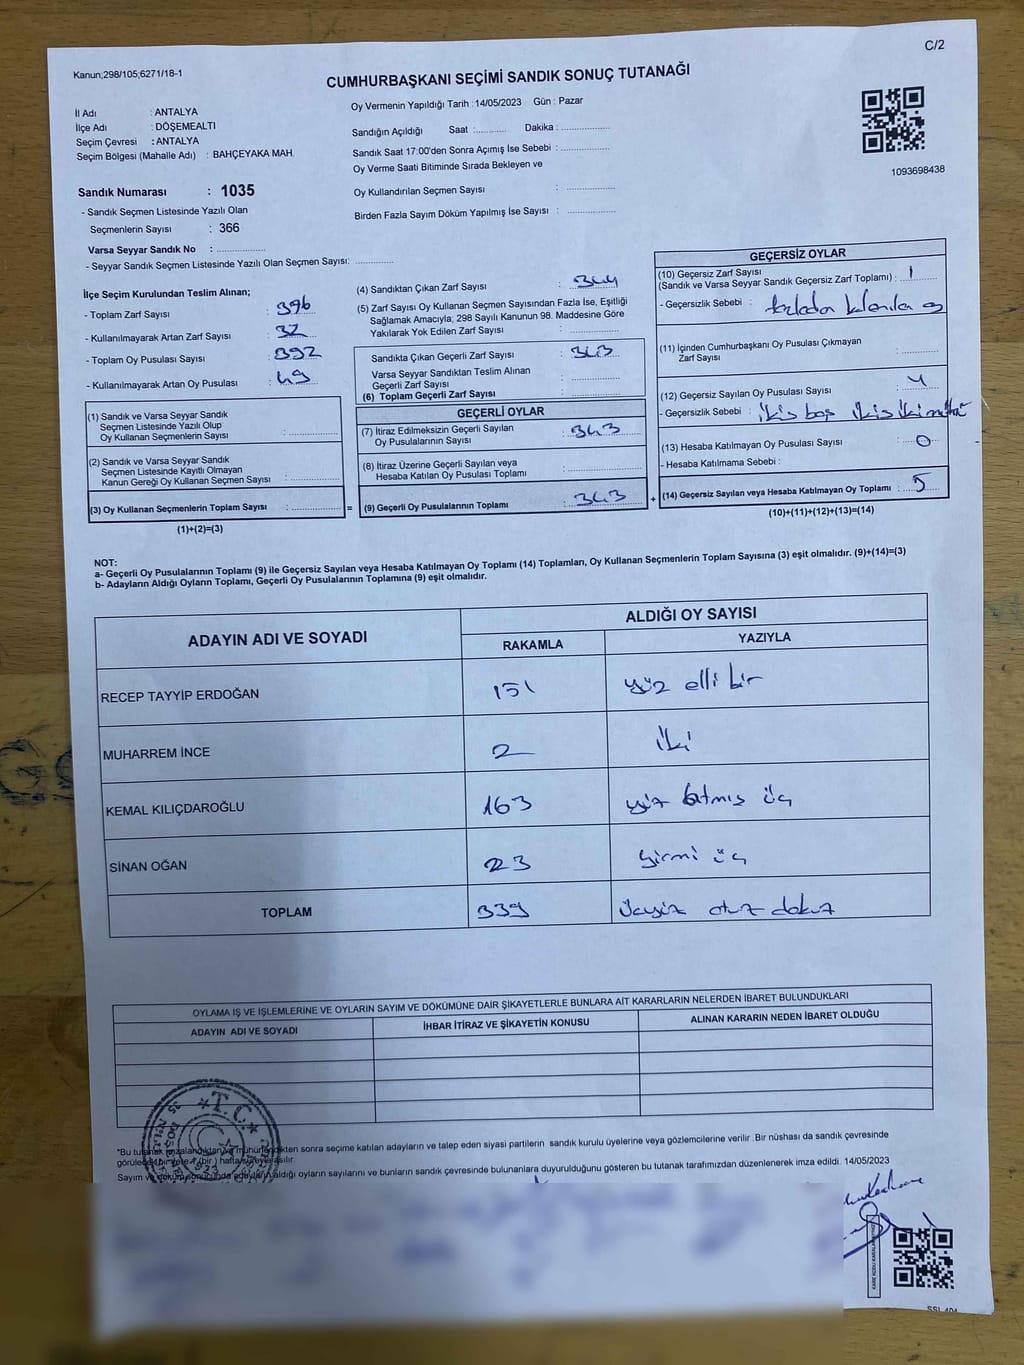 C/2
Kanun;298/105;6271/18-1
CUMHURBAŞKANI SEÇİMİ SANDIK SONUÇ TUTANAĞI
İl Adı : ANTALYA
İlçe Adı : DÖŞEMEALTI
Seçim Çevresi : ANTALYA
Seçim Bölgesi (Mahalle Adı) : BAHÇEYAKA MAH.
Sandık Numarası : 1035
- Sandık Seçmen Listesinde Yazılı Olan
Seçmenlerin Sayısı : 366
Varsa Seyyar Sandık No : ................
- Seyyar Sandık Seçmen Listesinde Yazılı Olan Seçmen Sayısı: .............
Oy Vermenin Yapıldığı Tarih : 14/05/2023 Gün : Pazar
Sandığın Açıldığı Saat :........... Dakika : ................
Sandık Saat 17:00'den Sonra Açımış İse Sebebi : ................
Oy Verme Saati Bitiminde Sırada Bekleyen ve
Oy Kullandırılan Seçmen Sayısı : ................
Birden Fazla Sayım Döküm Yapılmış İse Sayısı : ................
1093698438
İlçe Seçim Kurulundan Teslim Alınan;
- Toplam Zarf Sayısı : 396
- Kullanılmayarak Artan Zarf Sayısı : 32
- Toplam Oy Pusulası Sayısı : 392
- Kullanılmayarak Artan Oy Pusulası : 49
(1) Sandık ve Varsa Seyyar Sandık
Seçmen Listesinde Yazılı Olup
Oy Kullanan Seçmenlerin Sayısı : ................
(2) Sandık ve Varsa Seyyar Sandık
Seçmen Listesinde Kayıtlı Olmayan
Kanun Gereği Oy Kullanan Seçmen Sayısı : ................
(3) Oy Kullanan Seçmenlerin Toplam Sayısı : ................
(1)+(2)=(3)
=
(4) Sandıktan Çıkan Zarf Sayısı : 344
(5) Zarf Sayısı Oy Kullanan Seçmen Sayısından Fazla İse, Eşitliği
Sağlamak Amacıyla, 298 Sayılı Kanunun 98. Maddesine Göre
Yakılarak Yok Edilen Zarf Sayısı : ................
Sandıkta Çıkan Geçerli Zarf Sayısı : 343
Varsa Seyyar Sandıktan Teslim Alınan
Geçerli Zarf Sayısı : ................
(6) Toplam Geçerli Zarf Sayısı : ................
GEÇERLİ OYLAR
(7) İtiraz Edilmeksizin Geçerli Sayılan
Oy Pusulalarının Sayısı : 343
(8) İtiraz Üzerine Geçerli Sayılan veya
Hesaba Katılan Oy Pusulası Toplamı : ................
(9) Geçerli Oy Pusulalarının Toplamı : 343
+
GEÇERSİZ OYLAR
(10) Geçersiz Zarf Sayısı
(Sandık ve Varsa Seyyar Sandık Geçersiz Zarf Toplamı) : 1
- Geçersizlik Sebebi :
(11) İçinden Cumhurbaşkanı Oy Pusulası Çıkmayan
Zarf Sayısı : ................
(12) Geçersiz Sayılan Oy Pusulası Sayısı : 4
- Geçersizlik Sebebi : ikis boş ikis iki
(13) Hesaba Katılmayan Oy Pusulası Sayısı : 0
- Hesaba Katılmama Sebebi :
(14) Geçersiz Sayılan veya Hesaba Katılmayan Oy Toplamı : 5
(10)+(11)+(12)+(13)=(14)
NOT:
a- Geçerli Oy Pusulalarının Toplamı (9) ile Geçersiz Sayılan veya Hesaba Katılmayan Oy Toplamı (14) Toplamları, Oy Kullanan Seçmenlerin Toplam Sayısına (3) eşit olmalıdır. (9)+(14)=(3)
b- Adayların Aldığı Oyların Toplamı, Geçerli Oy Pusulalarının Toplamına (9) eşit olmalıdır.
ADAYIN ADI VE SOYADI ALDIĞI OY SAYISI
RAKAMLA YAZIYLA
RECEP TAYYİP ERDOĞAN 151 yüz elli bir
MUHARREM İNCE 2 iki
KEMAL KILIÇDAROĞLU 163 yüz atmış üç
SİNAN OĞAN 23 yirmi üç
TOPLAM 339 üçyüz otuz dokuz
OYLAMA İŞ VE İŞLEMLERİNE VE OYLARIN SAYIM VE DÖKÜMÜNE DAİR ŞİKAYETLERLE BUNLARA AİT KARARLARIN NELERDEN İBARET BULUNDUKLARI
ADAYIN ADI VE SOYADI İHBAR İTİRAZ VE ŞİKAYETİN KONUSU ALINAN KARARIN NEDEN İBARET OLDUĞU
T.C
*Bu tutanak imzalandıktan ve mühürlendikten sonra seçime katılan adayların ve talep eden siyasi partilerin sandık kurulu üyelerine veya gözlemcilerine verilir .Bir nüshası da sandık çevresinde
görülecek bir yere 1 (bir ) hafta süreyle asılır.
Sayım ve döküm sonucunda adayların aldığı oyların sayılarını ve bunların sandık çevresinde bulunanlara duyurulduğunu gösteren bu tutanak tarafımızdan düzenlenerek imza edildi. 14/05/2023